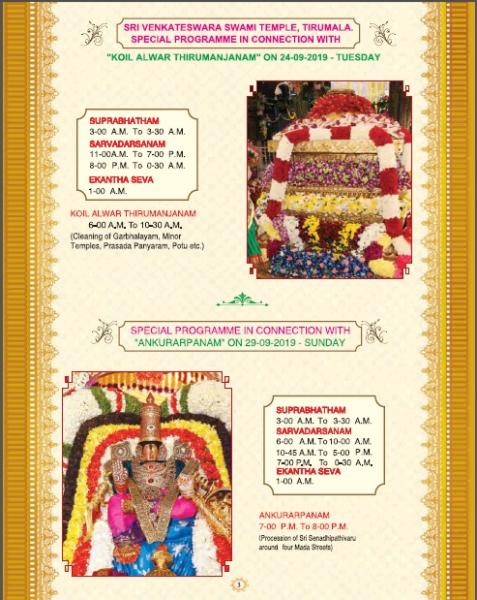 SRI VENKATESWARA SWAMI TEMPLE, TIRUMALA.
SPECIAL PROGRAMME IN CONNECTION WITH
"KOIL ALWAR THIRUMANJANAM" ON 24-09-2019 - TUESDAY
SUPRABHATHAM
3-00 A.M. To 3-30 A.M.
SARVADARSANAM
11-00A.M. To 7-00 P.M.
8-00 P.M. To 0-30 A.M.
EKANTHA SEVA
1-00 A.M.
KOIL ALWAR THIRUMANJANAM
6-00 A.M. To 10-30 A.M.
(Cleaning of Garbhalayam, Minor
Temples, Prasada Panyaram, Potu etc.)
SPECIAL PROGRAMME IN CONNECTION WITH
"ANKURARPANAM" ON 29-09-2019 - SUNDAY
SUPRABHATHAM
3-00 A.M. To 3-30 A.M.
SARVADARSANAM
6-00 A.M. To 10-00 A.M.
10-45 A.M. To 5-00 P.M.
7-00 P.M. To 0-30 A.M.
EKANTHA SEVA
1-00 A.M.
ANKURARPANAM
7-00 P.M. To 8-00 P.M.
(Procession of Sri Senadhipathivaru
around four Mada Streets)
3